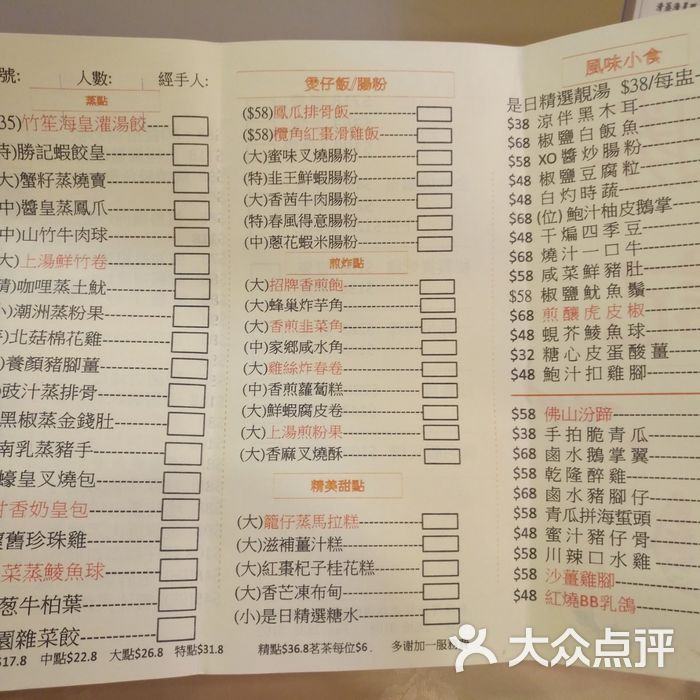 清蒸海星斑
號: 人數: 經手人:
蒸點
35)竹笙海皇灌湯餃
特)勝記蝦餃皇
大)蟹籽蒸燒賣
中)醬皇蒸鳳爪
中)山竹牛肉球
大)上湯鮮竹卷
精)咖哩蒸土魷
小)潮洲蒸粉果
)北菇棉花雞
)養顏豬腳薑
)豉汁蒸排骨
黑椒蒸金錢肚
南乳蒸豬手
蠔皇叉燒包
甘香奶皇包
懷舊珍珠雞
菜蒸鯪魚球
葱牛柏葉
園雜菜餃
$17.8 中點$22.8 大點$26.8 特點$31.8
煲仔飯/腸粉
($58)鳳瓜排骨飯
($58)欖角紅棗滑雞飯
(大)蜜味叉燒腸粉
(特)韭王鮮蝦腸粉
(大)香茜牛肉腸粉
(特)春風得意腸粉
(中)蔥花蝦米腸粉
煎炸點
(大)招牌香煎飽
(大)蜂巢炸芋角
(大)香煎韭菜角
(中)家鄉咸水角
(大)雞絲炸春卷
(中)香煎蘿蔔糕
(大)鮮蝦腐皮卷
(大)上湯煎粉果
(大)香麻叉燒酥
精美甜點
(大)籠仔蒸馬拉糕
(大)滋補薑汁糕
(大)紅棗杞子桂花糕
(大)香芒凍布甸
(小)是日精選糖水
精點$36.8茗茶每位$6. 多谢加一服務
風味小食
是日精選靚湯 $38/每盅
$38 涼伴黑木耳
$68 椒鹽白飯魚
$58 XO醬炒腸粉
$48 椒鹽豆腐粒
$48 白灼時蔬
$68 (位)鮑汁柚皮鵝掌
$48 干煸四季豆
$68 燒汁一口牛
$58 咸菜鮮豬肚
$58 椒鹽魷魚鬚
$68 煎釀虎皮椒
$48 蜆芥鯪魚球
$32 糖心皮蛋酸薑
$48 鮑汁扣雞腳
$58 佛山汾蹄
$38 手拍脆青瓜
$68 鹵水鵝掌翼
$58 乾隆醉雞
$68 鹵水豬腳仔
$58 青瓜拼海蜇頭
$48 蜜汁豬仔骨
$58 川辣口水雞
$58 沙薑雞腳
$48 紅燒BB乳鴿
大众点评